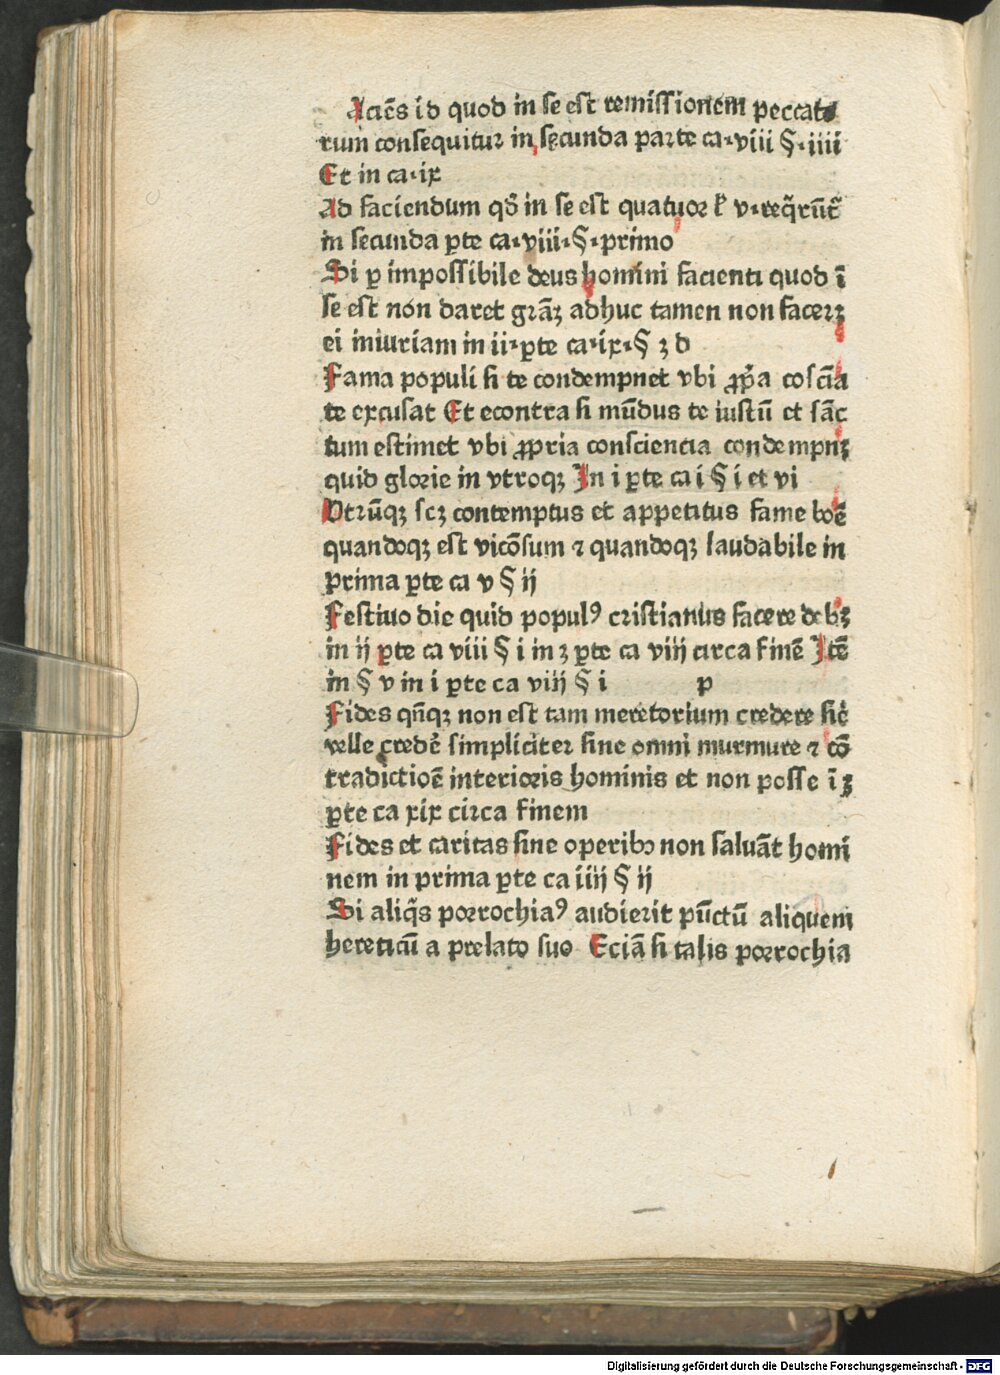 Aciēs id quod in se est remissionem peccato
rum consequitur in secunda parte ca·viii §·iiii
Et in ca·ix
Ad faciendum qđ in se est quatuor ł v·reqͥrūt͛
in secunda ꝑte ca·viii·§·primo
Si ꝑ impossibile deus homini facienti quod ī
se est non daret grāꝫ adhuc tamen non facerꝫ
ei iniuriam in ii·ꝑte ca·ix·§ ꝫ d
Fama populi si te condempnet vbi ꝓpͥa coscīa
te excusat Et econtra si mūdus te iustū et sāc
tum estimet vbi ꝓpria consciencia condempnꝫ
quid glorie in vtroqꝫ In i ꝑte ca i § i et vi
Vtrūqꝫ scꝫ contemptus et appetitus fame boē
quandoqꝫ est vicōsum ⁊ quandoqꝫ laudabile in
prima ꝑte ca v § ij
Festiuo die quid populꝰ cristianus facere debꝫ
in ij ꝑte ca viii § i in ꝫ ꝑte ca viij circa finē Itē
in § v in i ꝑte ca viij § i p
Fides qn̄qꝫ non est tam meretorium credere sic̄
velle credē simpliciter sine omni murmure ⁊ cō
tradictioē interioris hominis et non posse ī ꝫ
ꝑte ca xix circa finem
Fides et caritas sine operibꝰ non saluāt homi
nem in prima ꝑte ca iiij § ij
Si aliqͥs porrochiaꝰ audierit pūctū aliquem
hereticū a prelato suo Eciā si talis porrochia
Digitalisierung gefördert durch die Deutsche Forschungsgemeinschaft - DFG